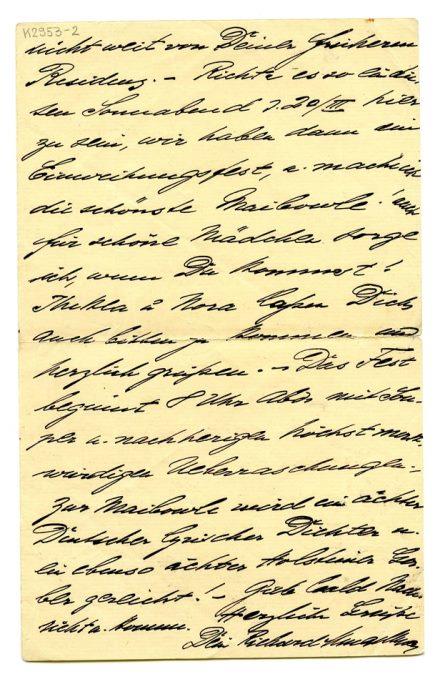 K2953-2
nicht weit von Deiner früheren
Residenz. – Richte es so ein die-
sen Sonnabend d. 20/III hier
zu sein, wir haben dann ein
Einweihungsfest, u. mach ich
die schönste Maibowle!
für schöne Mädchen sorge
ich, wenn Du kommst!
Thekla u Nora lassen Dich
auch bitten zu kommen und
herzlich grüßen. – Das Fest
beginnt 8 Uhr Abds mit Sou-
per u. nachherigen höchst merk-
würdigen Ueberraschungen –
Zur Maibowle wird ein ächter
Deutscher Lyrischer Dichter u.
ein ebenso ächter Holsteiner
gereicht! – Gieb bald
Herzliche Grüße
nicht u. komm.
Dein Richard